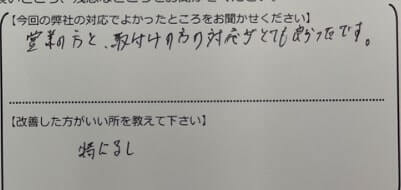 【今回の弊社の対応でよかったところをお聞かせください】
営業の方と、取付けの方の対応がとても良かったです。
【改善した方がいい所を教えて下さい】
特になし